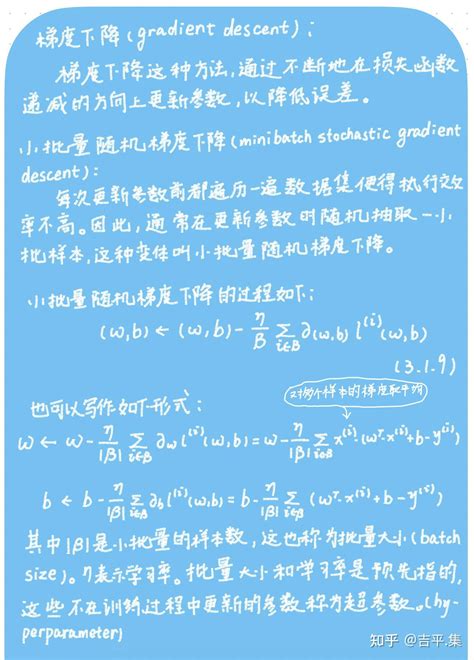 梯度下降(gradient descent):
梯度下降这种方法,通过不断地在损失函数
递减的方向上更新参数,以降低误差。
小批量随机梯度下降(minibatch stochastic gradient
descent):
每次更新参数前都遍历一遍数据集使得执行效
率不高。因此,通常在更新参数时随机抽取一小
批样本,这种变体叫小批量随机梯度下降。
小批量随机梯度下降的过程如下:
(w,b) ← (w,b) - η/β ∑i∈B ∂(w,b) l⁽ⁱ⁾(w,b)
(3.1.9)
也可以写作如下形式:
对每个样本的梯度取平均
w ← w - η/|β| ∑i∈β ∂w l⁽ⁱ⁾(w,b) = w - η/|β| ∑i∈β x⁽ⁱ⁾(wᵀ·x⁽ⁱ⁾+b-y⁽ⁱ⁾)
b ← b - η/|β| ∑i∈β ∂b l⁽ⁱ⁾(w,b) = b - η/|β| ∑i∈β (wᵀ·x⁽ⁱ⁾+b-y⁽ⁱ⁾)
其中|β|是小批量的样本数,这也称为批量大小(batch
size)。η表示学习率。批量大小和学习率是预先指的,
这些不在训练过程中更新的参数称为超参数。(hy-
perparameter)
知乎 @吉平.集